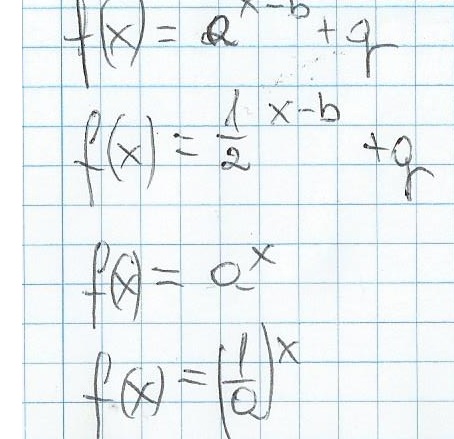 f(x) = a^{x-b} + q
f(x) = \frac{1}{2}^{x-b} + q
f(x) = a^x
f(x) = \left(\frac{1}{a}\right)^x